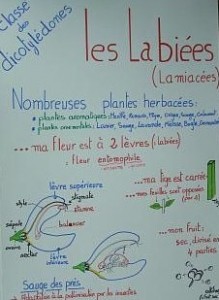 Classe des dicotylédones
les Labiées
(Lamiacées)
Nombreuses plantes herbacées:
plantes aromatiques: Menthe, Romarin, Thym, Origan, Sauge,
plantes ornementales: Lamier, Sauge, Lavande, Mélisse, Bugle,
...ma fleur est à 2 lèvres (labiées)
fleur entomophile
lèvre supérieure
stigmate
étamine
style
balancier
sépale
ovaire
nectar
lèvre inférieure
...ma tige est carrée
...mes feuilles sont opposées (par 2)
...mon fruit:
sec, divisé en
4 parties.
Sauge des prés
pollinisation par les insectes